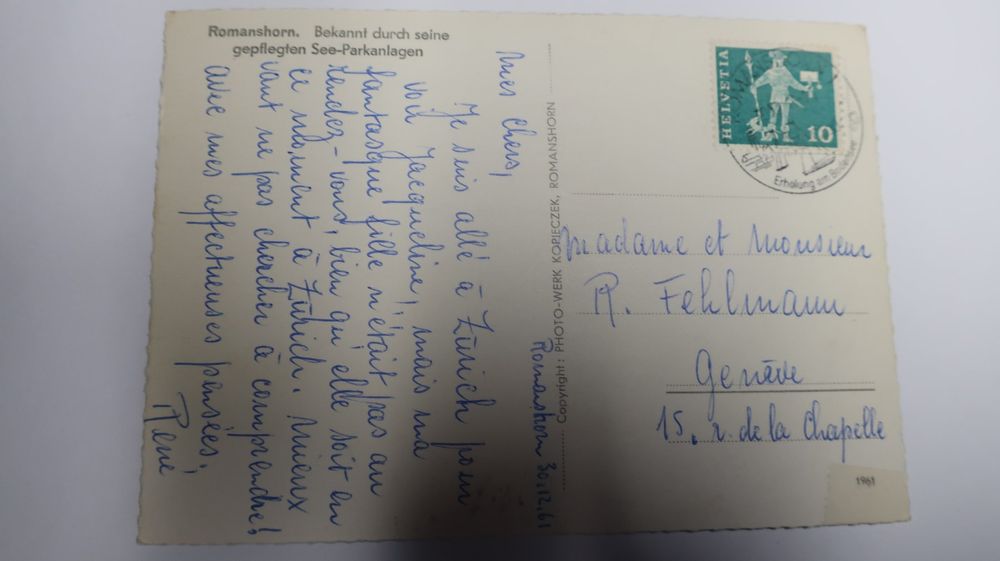 Romanshorn. Bekannt durch seine
gepflegten See-Parkanlagen
Mes chers,
Je suis allé à Zürich pour
voir Jacqueline! mais ma
fantasque fille n'était pas au
rendez-vous, bien qu'elle soit en
ce moment à Zürich. Mieux
vaut ne pas chercher à comprendre!
avec mes affectueuses pensées,
René
Romanshorn 30.12.61
Copyright: PHOTO-WERK KOPIECZEK, ROMANSHORN
HELVETIA
10
Erholung am Bodensee
Madame et Monsieur
R. Fehlmann
Genève
15, r. de la Chapelle
1961